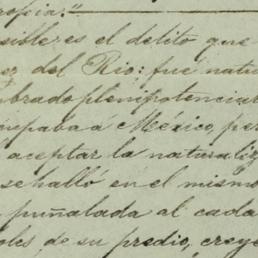 ropia."
sible es el delito que
del Rio: fué natu
brado plenipotenciar
upaba á México, per
aceptar la naturaliz
se halló en el mismo
puñalada al cada
oles de su predio, creye